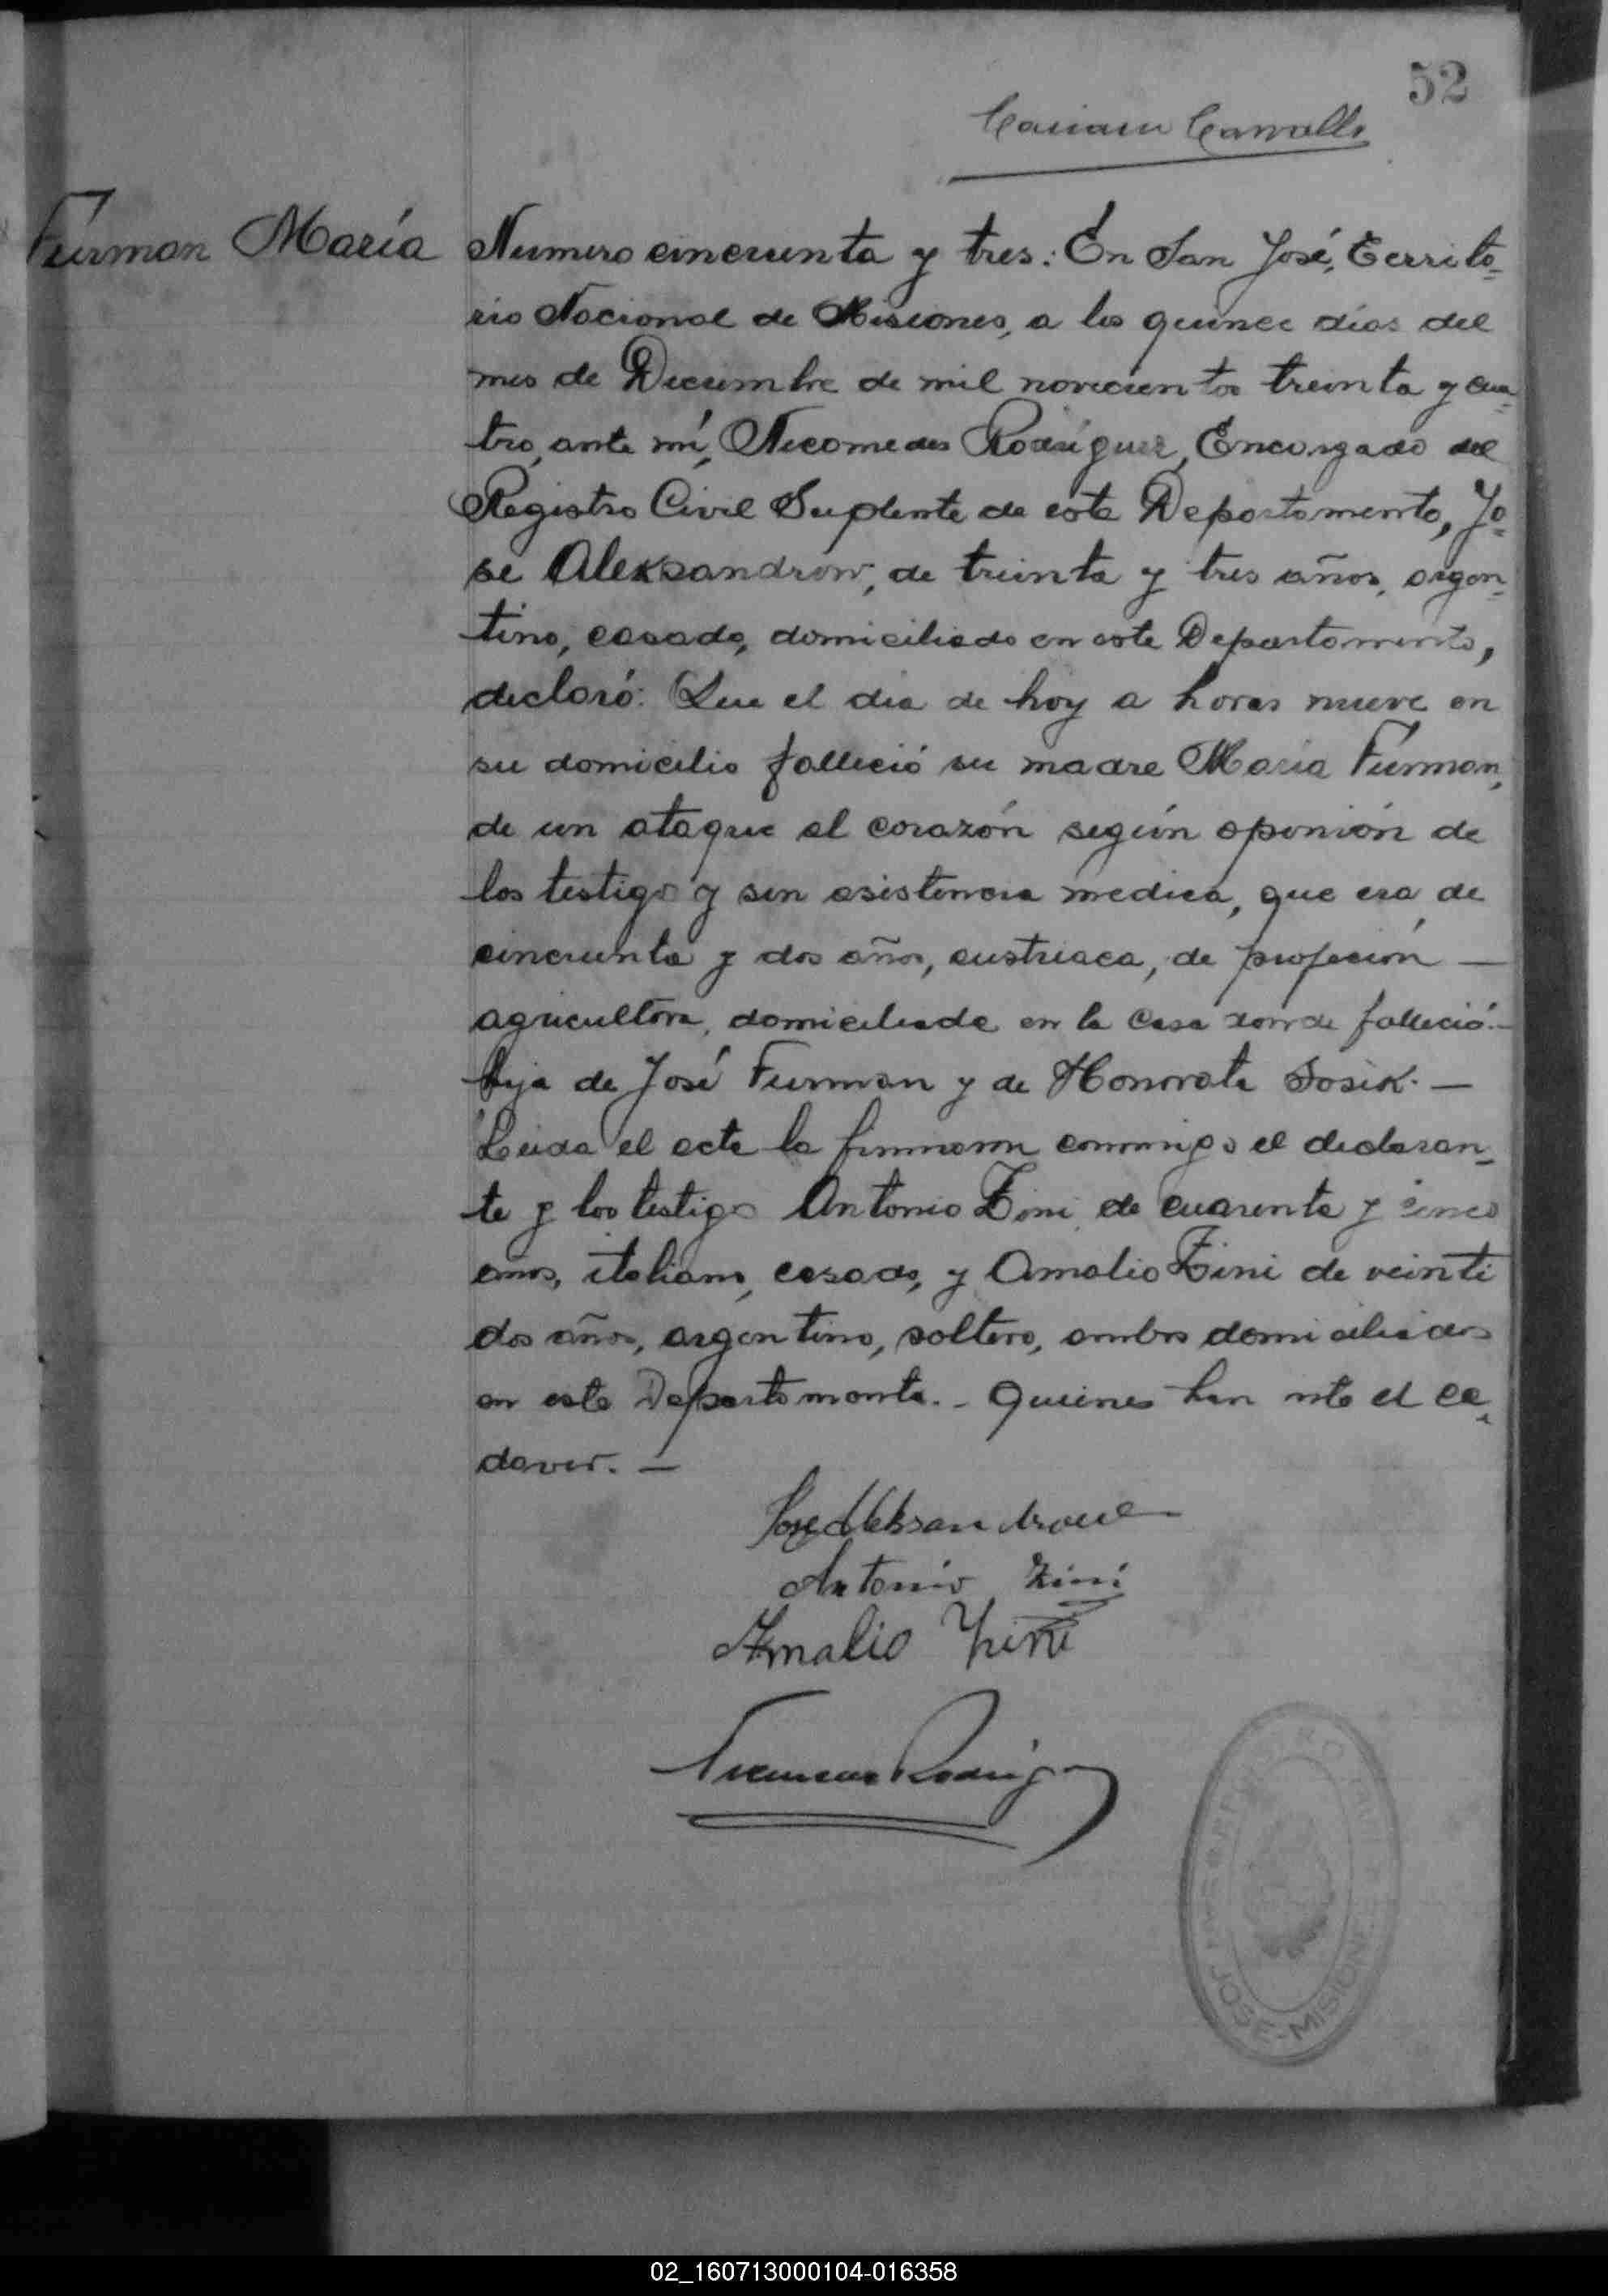 52
Furman María
Numero cincuenta y tres: En San José, Territo-
rio Nacional de Misiones, a los quince días del
mes de Diciembre de mil novecientos treinta y cua-
tro, ante mí, Nicomedes Rodríguez, Encargado del
Registro Civil Suplente de este Departamento, Jo-
se Aleksandrow, de treinta y tres años, argen-
tino, casado, domiciliado en este Departamento,
declaró: Que el día de hoy a horas nueve en
su domicilio falleció su madre María Furman,
de un ataque al corazón según oponión de
los testigos y sin asistencia medica, que era de
cincuenta y dos años, austriaca, de profeción —
agricultora, domiciliada en la casa donde falleció.—
hija de José Furman y de Honorata Sosik. —
Leida el acta la firmaron conmigo el declaran-
te y los testigos Antonio Zini de cuarenta y cinco
años, italiano, casado, y Amalio Zini de veinti
dos años, argentino, soltero, ambos domiciliados
en este Departamento. - Quienes han visto el ca-
daver. —
José Aleksandrow
Antonio Zini
Amalio Zini
Rodríg
JOSE - MISIONES
02_160713000104-016358